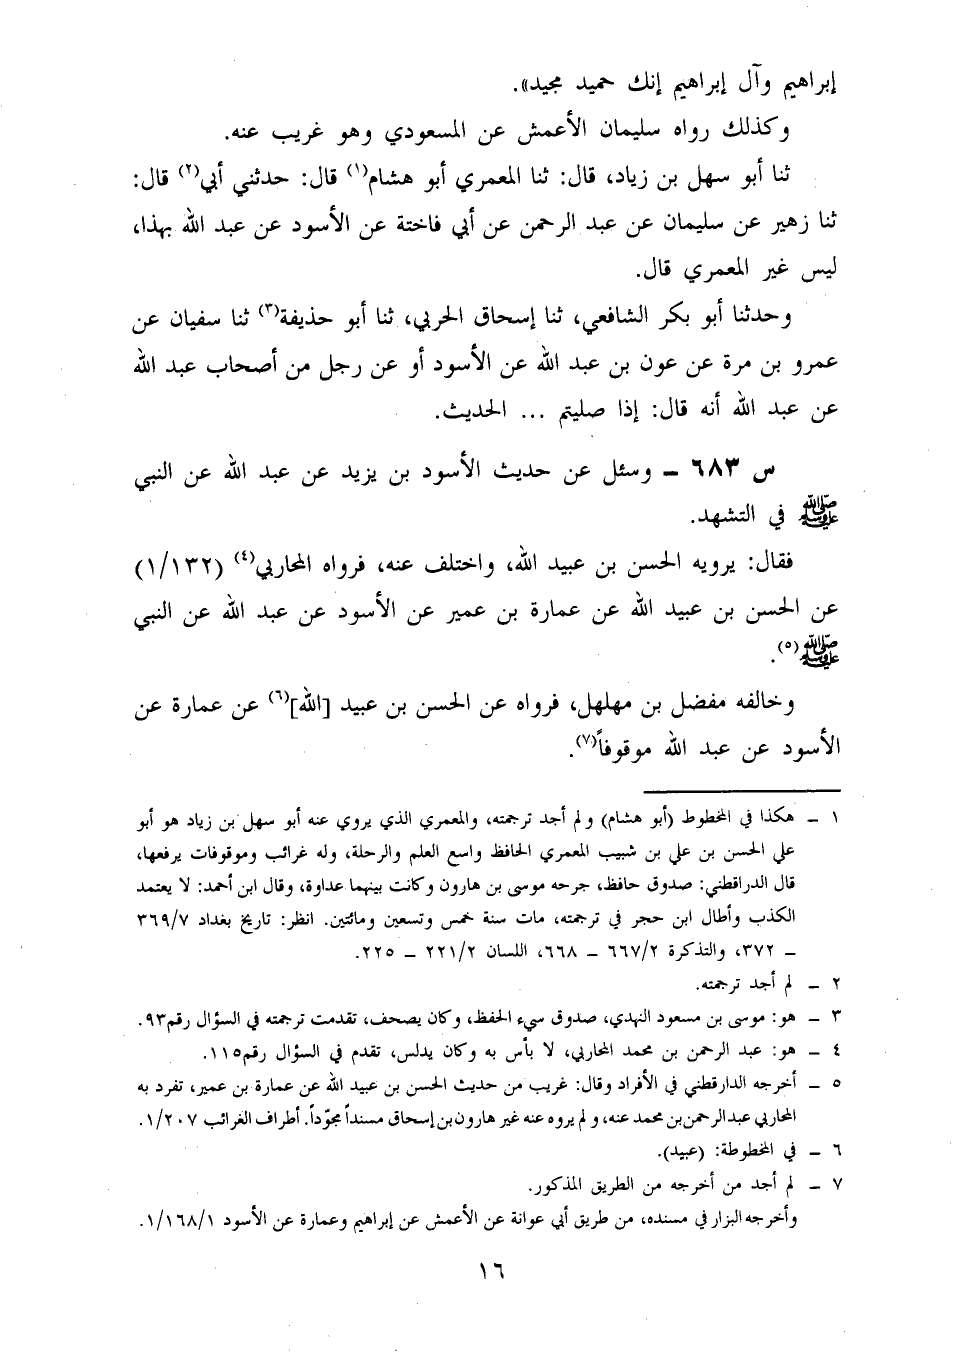 إبراهيم وآل إبراهيم إنك حميد مجيد».
وكذلك رواه سليمان الأعمش عن المسعودي وهو غريب عنه.
ثنا أبو سهل بن زياد، قال: ثنا المعمري أبو هشام(١) قال: حدثني أبي(٢) قال:
ثنا زهير عن سليمان عن عبد الرحمن عن أبي فاختة عن الأسود عن عبد الله بهذا،
ليس غير المعمري قال.
وحدثنا أبو بكر الشافعي، ثنا إسحاق الحربي، ثنا أبو حذيفة(٣) ثنا سفيان عن
عمرو بن مرة عن عون بن عبد الله عن الأسود أو عن رجل من أصحاب عبد الله
عن عبد الله أنه قال: إذا صليتم ... الحديث.
س ٦٨٣ – وسئل عن حديث الأسود بن يزيد عن عبد الله عن النبي
ﷺ في التشهد.
فقال: يرويه الحسن بن عبيد الله، واختلف عنه، فرواه المحاربي(٤) (١/١٣٢)
عن الحسن بن عبيد الله عن عمارة بن عمير عن الأسود عن عبد الله عن النبي
ﷺ(٥).
وخالفه مفضل بن مهلهل، فرواه عن الحسن بن عبيد [الله](٦) عن عمارة عن
الأسود عن عبد الله موقوفاً(٧).
١ – هكذا في المخطوط (أبو هشام) ولم أجد ترجمته، والمعمري الذي يروي عنه أبو سهل بن زياد هو أبو
علي الحسن بن علي بن شبيب المعمري الحافظ واسع العلم والرحلة، وله غرائب وموقوفات يرفعها،
قال الدراقطني: صدوق حافظ، جرحه موسى بن هارون وكانت بينهما عداوة، وقال ابن أحمد: لا يعتمد
الكذب وأطال ابن حجر في ترجمته، مات سنة خمس وتسعين ومائتين. انظر: تاريخ بغداد ٣٦٩/٧
– ٣٧٢، والتذكرة ٦٦٧/٢ – ٦٦٨، اللسان ٢٢١/٢ – ٢٢٥.
٢ – لم أجد ترجمته.
٣ – هو: موسى بن مسعود النهدي، صدوق سيء الحفظ، وكان يصحف، تقدمت ترجمته في السؤال رقم٩٣.
٤ – هو: عبد الرحمن بن محمد المحاربي، لا بأس به وكان يدلس، تقدم في السؤال رقم١١٥.
٥ – أخرجه الدارقطني في الأفراد وقال: غريب من حديث الحسن بن عبيد الله عن عمارة بن عمير، تفرد به
المحاربي عبدالرحمن بن محمد عنه، ولم يروه عنه غير هارون بن إسحاق مسنداً مجوّداً. أطراف الغرائب ١/٢٠٧.
٦ – في المخطوطة: (عبيد).
٧ – لم أجد من أخرجه من الطريق المذكور.
وأخرجه البزار في مسنده، من طريق أبي عوانة عن الأعمش عن إبراهيم وعمارة عن الأسود ١/١٦٨/١.
١٦